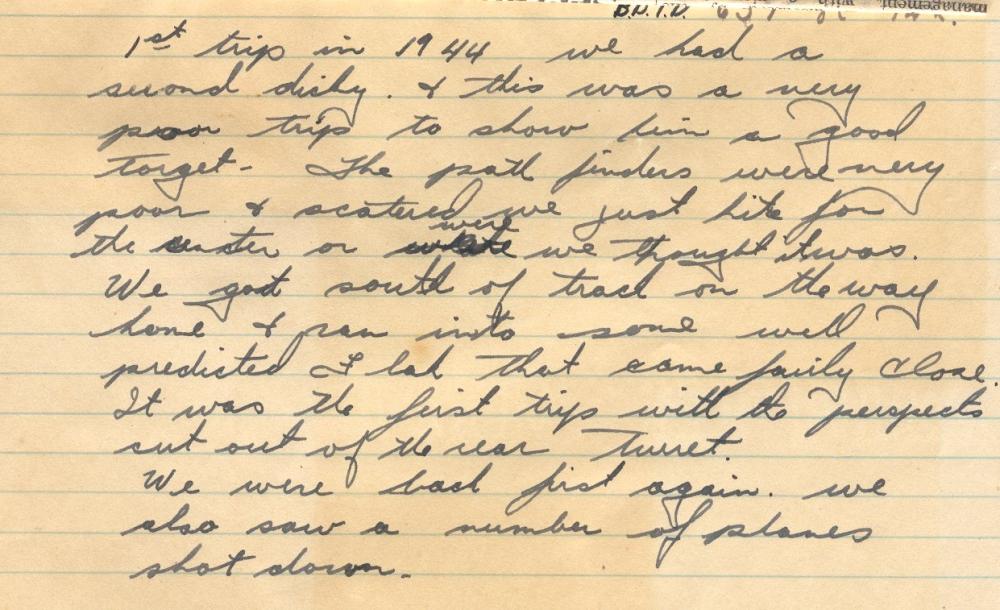 management. with
D.N.I.D.
1st trip in 1944 we had a
second dicky. & this was a very
poor trip to show him a good
target- The path finders were very
poor & scatered, we just hite for
the center or were we thought it was.
We got south of track on the way
home & ran into some well
predicted Flak that came fairly close.
It was the first trip with the perspects
cut out of the rear turret.
We were back first again. we
also saw a number of planes
shot down.